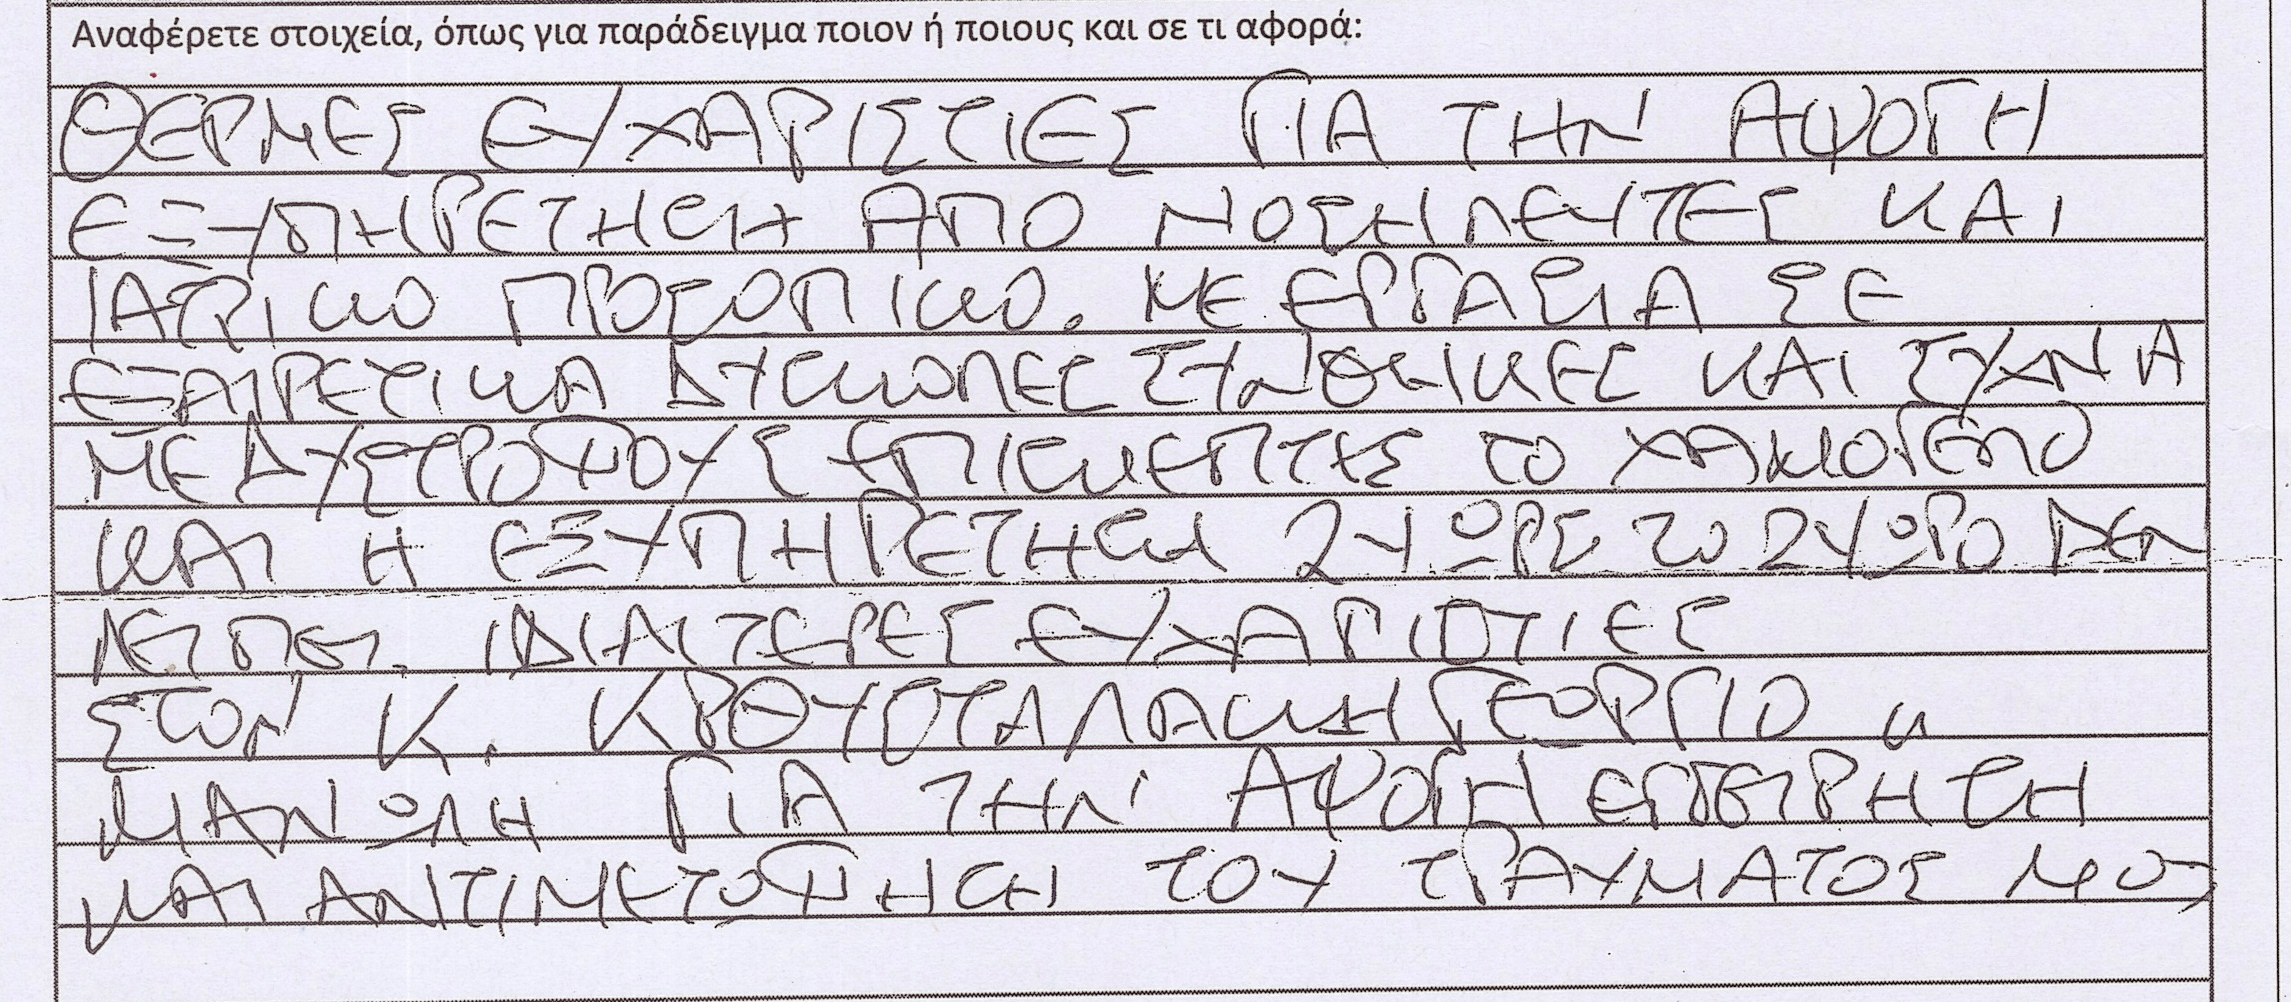 Αναφέρετε στοιχεία, όπως για παράδειγμα ποιον ή ποιους και σε τι αφορά:
ΘΕΡΜΕΣ ΕΥΧΑΡΙΣΤΙΕΣ ΓΙΑ ΤΗΝ ΑΨΟΓΗ
ΕΞΥΠΗΡΕΤΗΣΗ ΑΠΟ ΝΟΣΗΛΕΥΤΕΣ ΚΑΙ
ΙΑΤΡΙΚΟ ΠΡΟΣΩΠΙΚΟ. ΜΕ ΕΡΓΑΣΙΑ ΣΕ
ΕΞΑΙΡΕΤΙΚΑ ΔΥΣΚΟΛΕΣ ΣΥΝΘΕΙΚΕΣ ΚΑΙ ΣΥΧΝΑ
ΜΕ ΔΥΣΤΡΟΠΟΥΣ ΕΠΙΣΚΕΠΤΕΣ ΤΟ ΧΑΜΟΓΕΛΟ
ΚΑΙ Η ΕΞΥΠΗΡΕΤΗΣΗ 24 ΩΡΕΣ ΤΟ 24ΩΡΟ ΔΕΝ
ΛΕΙΠΕΙ. ΙΔΙΑΙΤΕΡΕΣ ΕΥΧΑΡΙΣΤΙΕΣ
ΣΤΟΝ Κ. ΚΡΟΥΣΤΑΛΑΚΗ ΓΕΩΡΓΙΟ κ
ΜΑΝΩΛΗ ΓΙΑ ΤΗΝ ΑΨΟΓΗ ΕΓΧΕΙΡΗΣΗ
ΚΑΙ ΑΝΤΙΜΕΤΩΠΗΣΗ ΤΟΥ ΤΡΑΥΜΑΤΟΣ ΜΟΥ